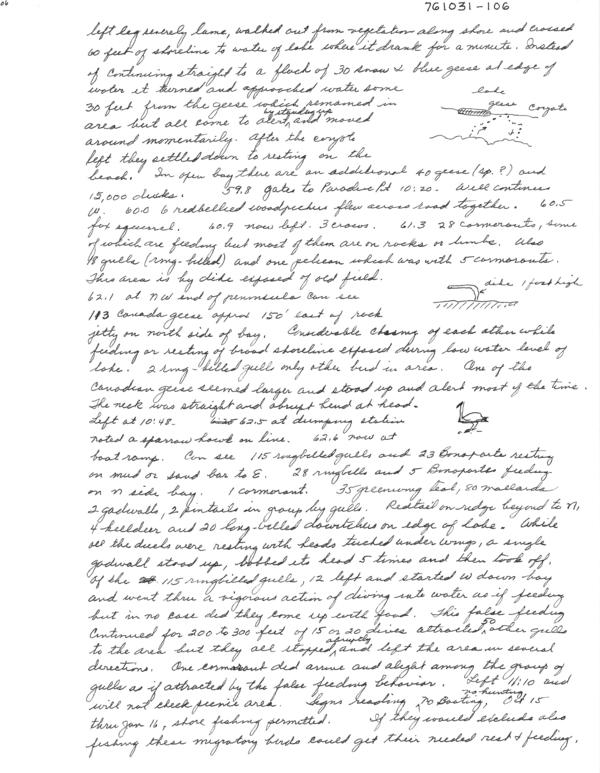 06
761031-106
left leg severely lame, walked out from vegetation along shore and crossed
60 feet of shoreline to water of lake where it drank for a minute. Instead
of continuing straight to a flock of 30 snow & blue geese at edge of
water it turned and approached water some
30 feet from the geese which remained in
area but all come to alert by standing up and moved
around momentarily. After the coyote
left they settled down to resting on the
beach. In open bay there are an additional 40 geese (sp.?) and
15,000 ducks. 59.8 gates to Paradise Pt 10:20. Will continue
W. 60.0 6 redbellied woodpeckers flew across road together. 60.5
fox squirrel. 60.9 now left. 3 crows. 61.3 28 cormorants, some
of which are feeding but most of them are on rocks or limbs. Also
18 gulls (ring-billed) and one pelican which was with 5 cormorants.
This area is by dike exposed of old field.
62.1 at NW end of peninsula can see
113 Canada geese approx 150' east of rock
jetty on north side of bay. Considerable chasing of each other while
feeding or resting of broad shoreline exposed during low water level of
lake. 2 ring-billed gulls only other bird in area. One of the
Canadian geese seemed larger and stood up and alert most of the time.
The neck was straight and abrupt bend at head.
Left at 10:48. 62.5 at dumping station
noted a sparrow hawk on line. 62.6 now at
boat ramp. Can see 115 ringbilled gulls and 23 Bonaparte resting
on mud or sand bar to E. 28 ringbills and 5 Bonapartes feeding
on N side bay. 1 cormorant. 35 greenwing teal, 80 mallards
2 gadwalls, 2 pintails in group by gulls. Redtail on ridge beyond to N,
4 killdeer and 20 long-billed dowitchers on edge of lake. While
all the ducks were resting with heads tucked under wings, a single
gadwall stood up, bobbed its head 5 times and then took off.
Of the 115 ringbilled gulls, 12 left and started W down bay
and went thru a vigorous action of diving into water as if feeding
but in no case did they come up with food. This false feeding
continued for 200 to 300 feet of 15 or 20 dives attracted 50 other gulls
to the area but they all stopped abruptly and left the area in several
directions. One cormorant did arrive and alight among the group of
gulls as if attracted by the false feeding behavior. Left 11:10 and
will not check picnic area. Signs reading, No Boating, no hunting Oct 15
thru Jan 16, shore fishing permitted. If they would exclude also
fishing these migratory birds could get their needed rest & feeding.
lake
geese
Coyote
dike 1 foot high